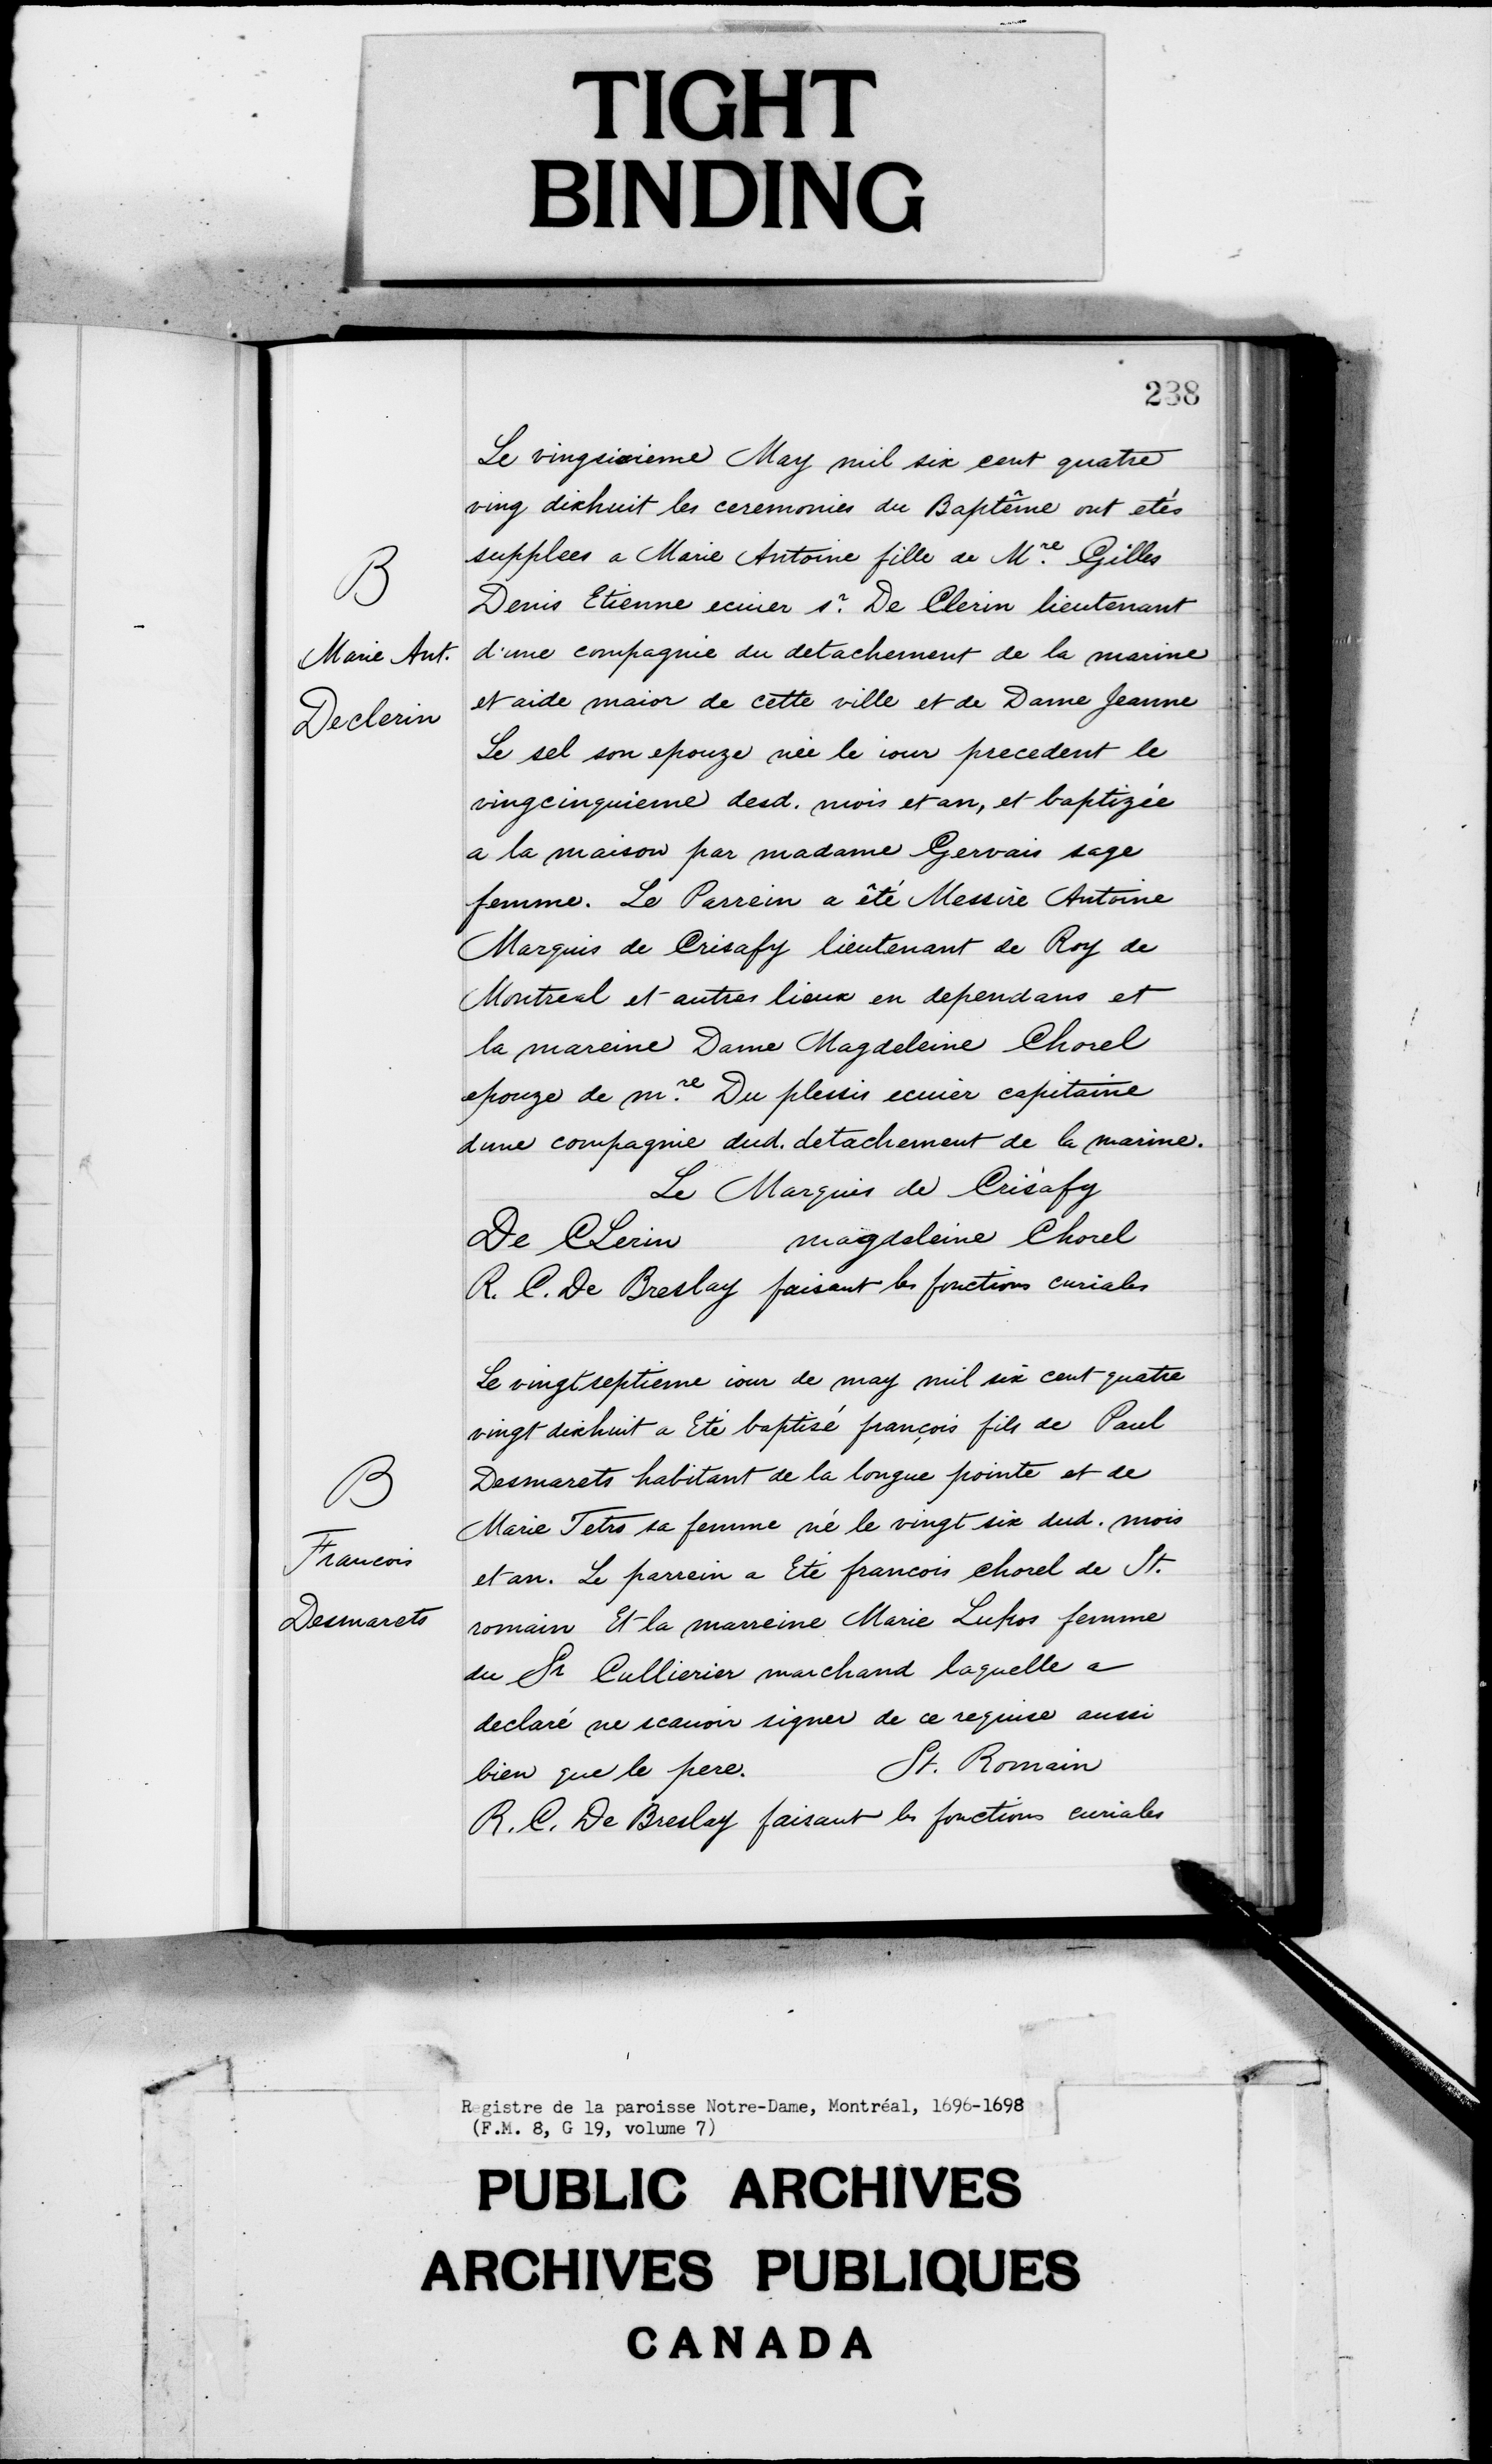 TIGHT
BINDING
238
Le vingsixieme May mil six cent quatre
ving dixhuit les ceremonies du Baptême ont etés
supplees a Marie Antoine fille de Mre. Gilles
B
Denis Etienne ecuier sr. De Clerin lieutenant
Marie Ant.
d'une compagnie du detachement de la marine
Declerin
et aide maior de cette ville et de Dame Jeanne
Le sel son epouze née le iour precedent le
vingcinquieme desd. mois et an, et baptizée
a la maison par madame Gervais sage
femme. Le Parrein a êté Messire Antoine
Marquis de Crisafy lieutenant de Roy de
Montreal et autres lieux en dependans et
la mareine Dame Magdeleine Chorel
epouze de mre. Du plessis ecuier capitaine
dune compagnie dud. detachement de la marine.
Le Marquis de Crisafy
De CLerin magdeleine Chorel
R. C. De Breslay faisant les fonctions curiales
Le vingt septieme iour de may mil six cent quatre
vingt dixhuit a Eté baptisé françois fils de Paul
B
Desmarets habitant de la longue pointe et de
Marie Tetro sa femme né le vingt six dud. mois
Francois
et an. Le parrein a Eté francois chorel de St.
Desmarets
romain Et la marreine Marie Lukos femme
du Sr Cullierier marchand laquelle a
declaré ne scauoir signer de ce requise aussi
bien que le pere. St. Romain
R. C. De Breslay faisant les fonctions curiales
Registre de la paroisse Notre-Dame, Montréal, 1696-1698
(F.M. 8, G 19, volume 7)
PUBLIC ARCHIVES
ARCHIVES PUBLIQUES
CANADA